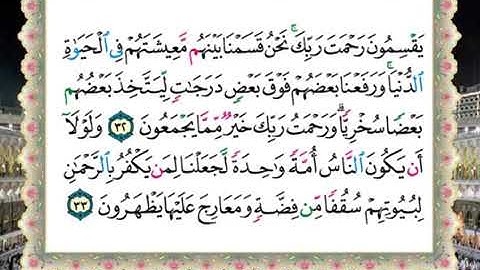 يَقْسِمُونَ رَحْمَتَ رَبِّكَ ۚ نَحْنُ قَسَمْنَا بَيْنَهُم مَّعِيشَتَهُمْ فِي الْحَيَوٰةِ
الدُّنْيَا ۚ وَرَفَعْنَا بَعْضَهُمْ فَوْقَ بَعْضٍ دَرَجَٰتٍ لِّيَتَّخِذَ بَعْضُهُم
بَعْضًا سُخْرِيًّا ۗ وَرَحْمَتُ رَبِّكَ خَيْرٌ مِّمَّا يَجْمَعُونَ ٣٢ وَلَوْلَآ
أَن يَكُونَ النَّاسُ أُمَّةً وَٰحِدَةً لَّجَعَلْنَا لِمَن يَكْفُرُ بِالرَّحْمَٰنِ
لِبُيُوتِهِمْ سُقُفًا مِّن فِضَّةٍ وَمَعَارِجَ عَلَيْهَا يَظْهَرُونَ ٣٣